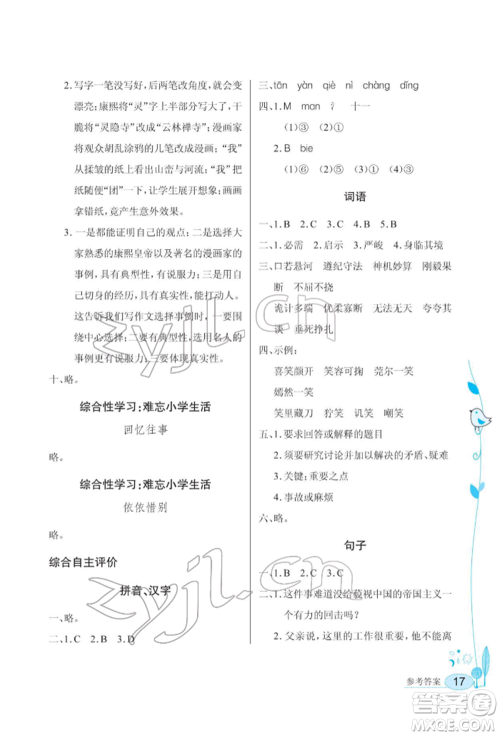 2. 写字一笔没写好，后两笔改角度，就改变
漂亮；康熙将“灵”字上半部分写得太
大，便将“灵隐寺”改成“云林禅寺”；画家
将观众胡乱涂鸦的几笔改成马；“我”
把从揉皱的纸上看出山峦与河流；“我”把
纸随便“团”一下，让学生展开想象；画画
拿错纸，竟产生意外效果。
3. 一是都能证明自己的观点；二是选择大
家熟悉的康熙皇帝以及著名的漫画家的
事例，具有典型性，有说服力；三是自
己切身的经历，具有真实性，能打动人。
这告诉我们写作文选择事例：一要紧紧
围绕中心；二要有典型性，选用名人的
事例更有说服力；三要有具体真实性。
十、略。
综合性学习：难忘小学生活
回忆往事
略。
综合性学习：难忘小学生活
依依惜别
略。
综合自主评价
拼音、汉字
一、略。
二、1. C 2. B 3. D
三、tān yàn qiè nì chàng dǐng
四、1. M man 氵 十一
(1)③ (2)③ (3)①
2. B bie
(1)⑥ (2)② (3)⑤ (4)①
词语
一、1. B 2. C 3. C
二、1. 必需 2. 启示 3. 严峻 4. 身临其境
三、口若悬河 遵纪守法 神机妙算 刚毅果
断 不屈不挠
诡计多端 优柔寡断 无法无天 夸夸其
谈 垂死挣扎
四、示例：
喜笑颜开 捧腹大笑 莞尔一笑
嫣然一笑
笑里藏刀 狂笑 奸笑 嘲笑
五、1. 要求回答或解释的题目
2. 须要研究讨论并加以解决的矛盾、疑难
3. 关键；重要之点
4. 事故或麻烦
六、略。
句子
一、1. B 2. C 3. C
二、1. 这件事难道没给藐视中国的帝国主义一
个有力的回击吗？
2. 父亲说，这里的工作很重要，他不能离
参考答案 17
zyjl.cn
zyjl.cn
答案圈
MXQE.COM